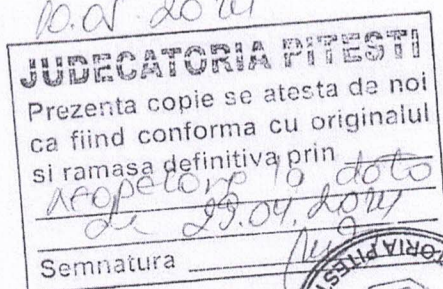 JUDECATORIA PITESTI
Prezenta copie se atesta de noi
ca fiind conforma cu originalul
si ramasa definitiva prin
neapelare la data
de 29.04.2014
Semnatura